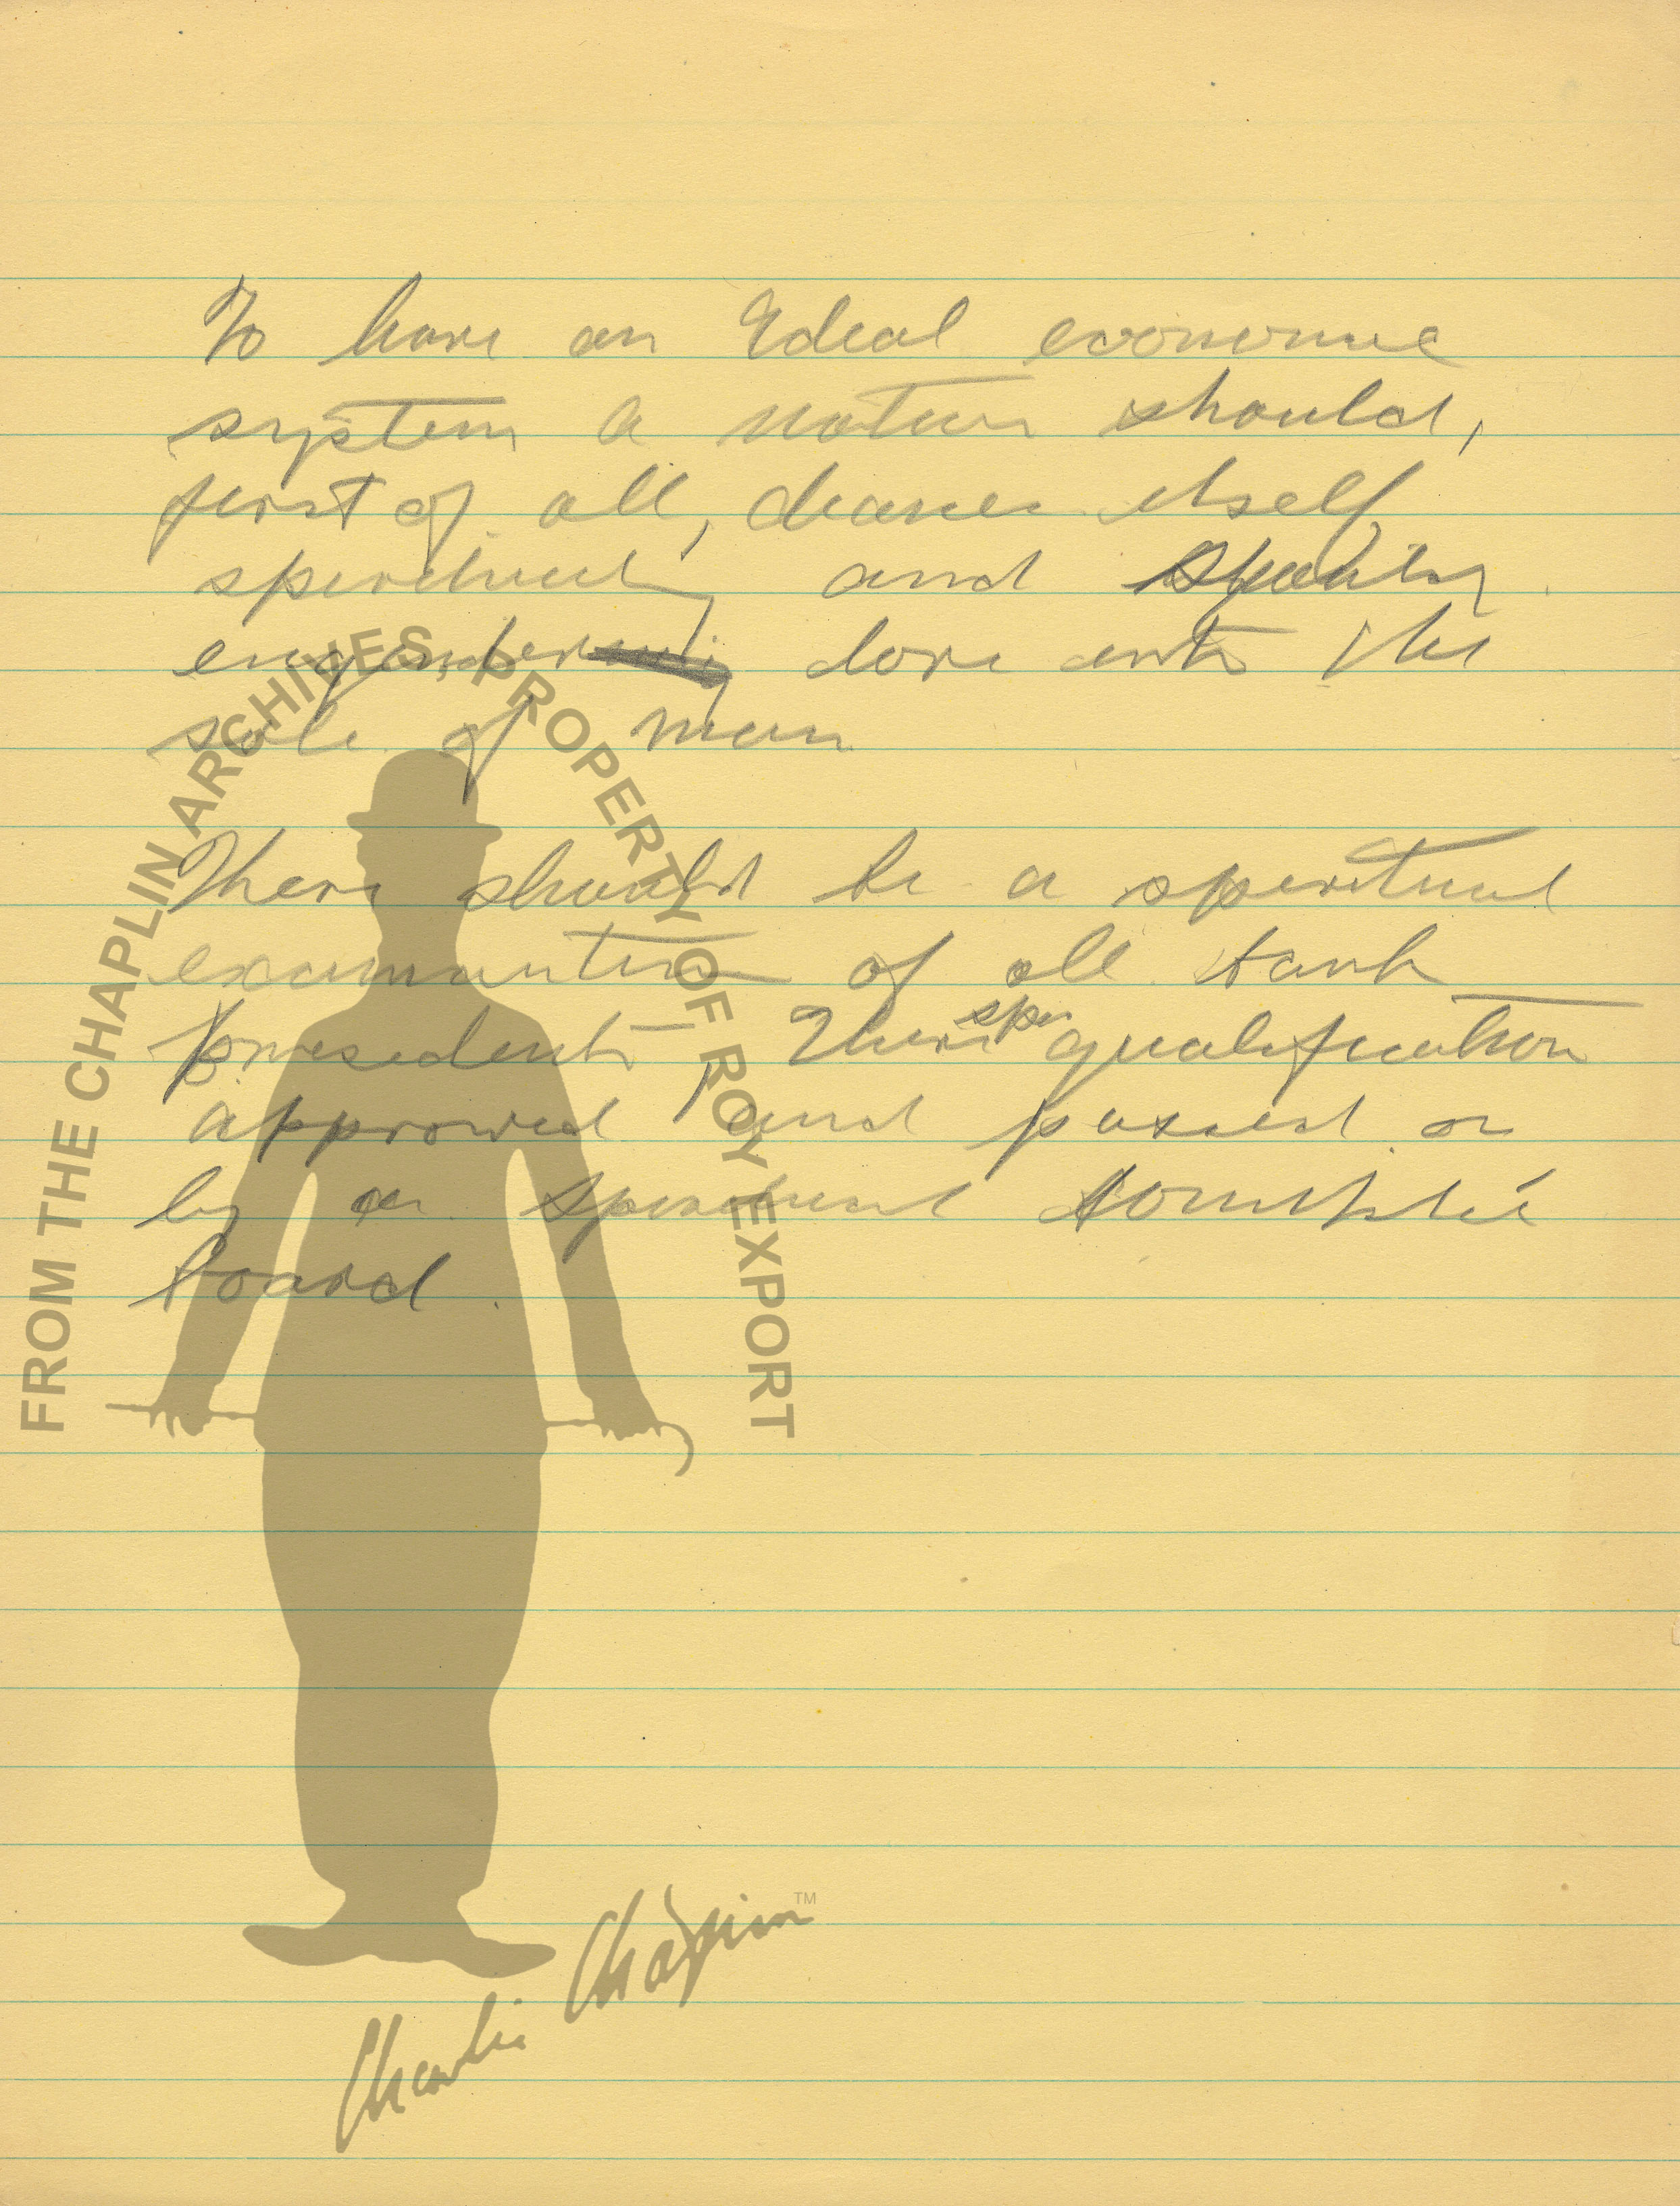 To have an Ideal economic
system a nation should,
first of all, cleanse itself
spiritually and
engender love into the
sole of man
There should be a spiritual
examination of all bank
presidents, their spir qualification
approved and passed on
by a spiritual
board.
FROM THE CHAPLIN ARCHIVES PROPERTY OF ROY EXPORT
Charlie Chaplin TM